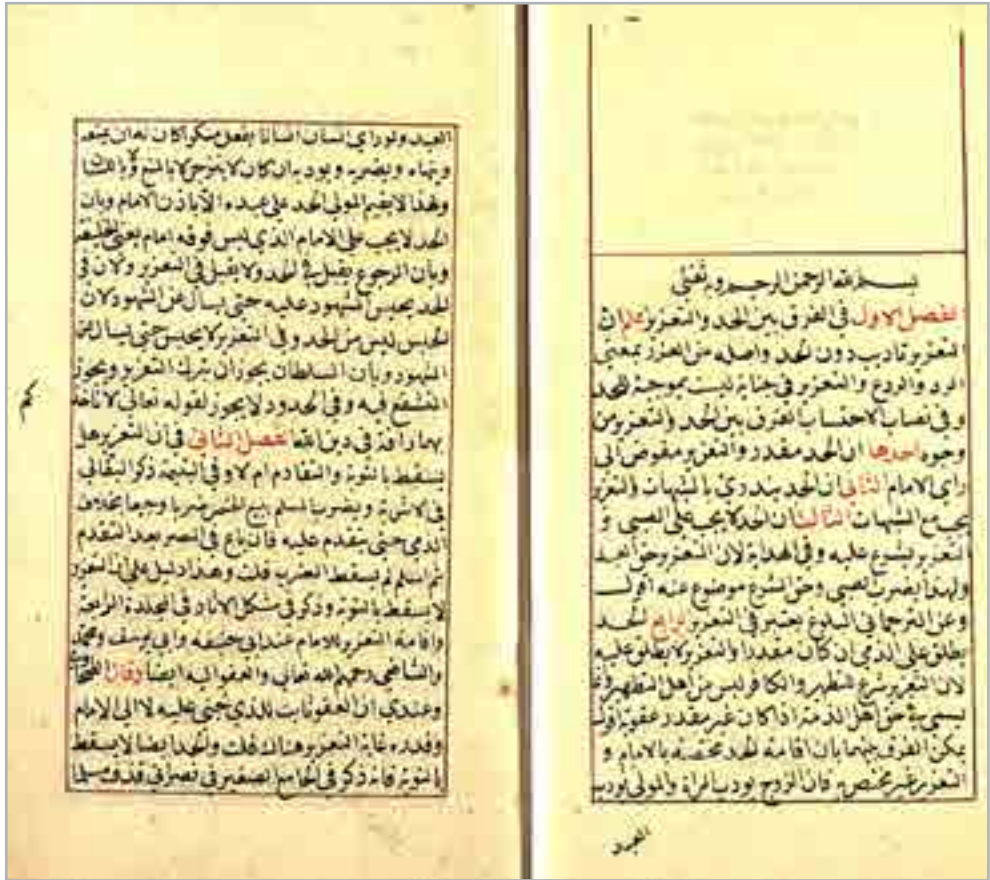 بسم الله الرحمن الرحيم وبه ثقتي
الفصل الاول في الفرق بين الحد والتعزير اعلم ان
التعزير تاديب دون الحد واصله من العزر بمعنى
الرد والردع والتعزير في جناية ليست بموجبة للحد
وفي نصاب الاحتساب الفرق بين الحد والتعزير من
وجوه احدها ان الحد مقدر والتعزير مفوض الى
راي الامام الثاني ان الحد يندرئ بالشبهات والتعزير
يجب مع الشبهات الثالث ان الحد لا يجب على الصبي و
التعزير يشرع عليه وفي الهداية لان التعزير حق العبد
ولهذا يضرب الصبي وحق الشرع موضوع عنه اقول
وعن الترجماني البلوغ يعتبر في التعزير الرابع الحد
يطلق على الذمي ان كان مقدرا والتعزير لا يطلق عليه
لان التعزير شرع للتطهير والكافر ليس من اهل التطهير
يسمى في حق اهل الذمة اذا كان غير مقدر عقوبة اقول
يمكن الفرق بينهما بان اقامة الحد مختصة بالامام و
التعزير غير مختص به فان الزوج يودب المراة والمولى يودب
العبد
العبد ولو راى انسان انسانا يفعل منكرا كان له ان يمنعه
وينهاه ويضربه ويودبه ان كان لا ينزجر بالمنع باللسان
ولهذا لا يقيم المولى الحد على عبده الا باذن الامام وبان
الحد لا يجب على الامام الذي ليس فوقه امام يعني الخليفة
وبان الرجوع يقبل في الحد ولا يقبل في التعزير ولان في
الحد يحبس المشهود عليه حتى يسال عن الشهود لان
الحبس ليس من الحد وفي التعزير لا يحبس حتى يسال عن
الشهود وبان السلطان يجوز ان يترك التعزير ويجوز
التشفع فيه وفي الحدود لا يجوز لقوله تعالى لا تاخذكم
بهما رافة في دين الله الفصل الثاني في ان التعزير هل
يسقط بالتوبة والتقادم ام لا وفي اليتيمة ذكر البقالي
في الاشربة ويضرب المسلم ببيع الخمر ضربا وجيعا بخلاف
الذمي حتى يتقدم عليه فان باع في المصر بعد التقدم
ثم اسلم لم يسقط الضرب قلت وهذا دليل على ان التعزير
لا يسقط بالتوبة وذكر في مشكل الاثار في المجلدة الرابعة
واقامة التعزير بالامام عند ابي حنيفة وابي يوسف ومحمد
والشافعي رحمهم الله تعالى والعفو اليه ايضا وقال الطحاوي
وعندي ان العقوبات للذي جني عليه لا الى الامام
وقدره غاية التعزير هناك قلت والحد ايضا لا يسقط
بالتوبة فانه ذكر في الجامع الصغير في نصراني قذف مسلما